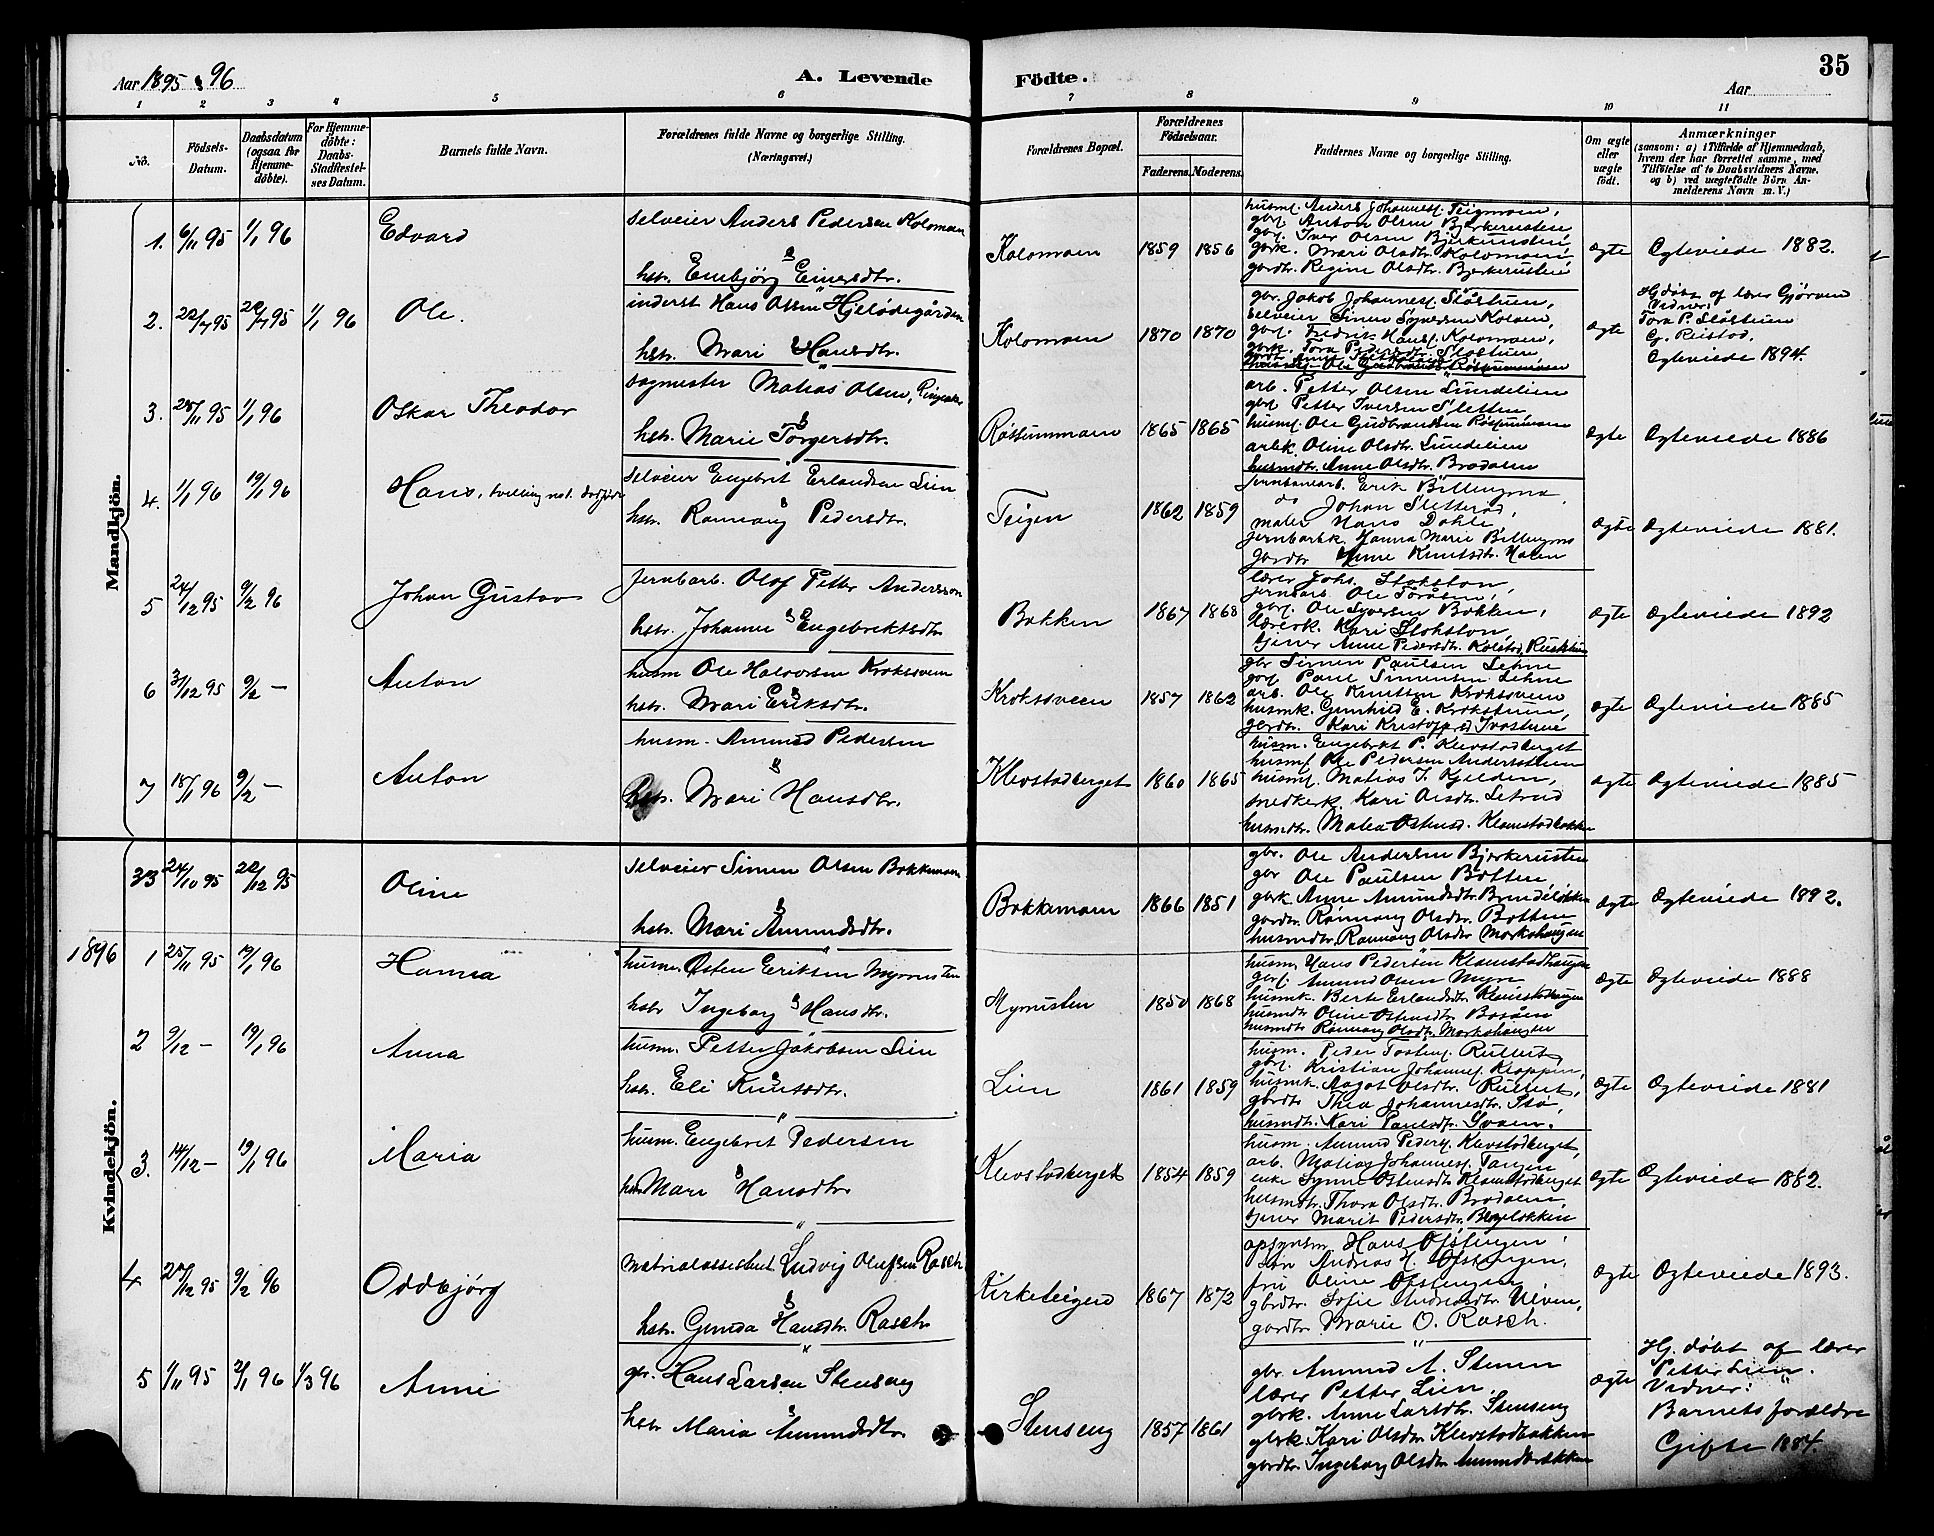 Aar 1895 & 96
A. Levende Födte.
35
Aar
1 2 3 4 5 6 7 8 9 10 11
No.
Födsels-Datum.
Daabsdatum (ogsaa for Hjemme-döbte).
For Hjemme-döbte: Daabs-Stadfæstel-ses Datum.
Barnets fulde Navn.
Forældrenes fulde Navne og borgerlige Stilling. (Næringsvei.)
Forældrenes Bopæl.
Forældrenes Födselsaar.
Faderens. Moderens.
Faddernes Navne og borgerlige Stilling.
Om ægte eller uægte födt.
Anmærkninger
(saasom: a) i Tilfælde af Hjemmedaab, hvem der har forrettet samme, med Tilföielse af to Daabsvidners Navne, og b) ved uægtefödte Börn Anmelderens Navn m. V.)
Mandkjön.
1. 6/11 95 1/1 96 Edvard
selveier Anders Pedersen Kolomoen
&
hstr. Embjörg Einersdtr.
Kolomoen 1859 1856
husmf. Anders Johannesf. Teigmoen,
gbf. Anton Olsen Bjerkerusten
gbf. Iver Olsen Bjerkerusten,
gbrk. Mari Olsdtr. Kolomoen,
gbrdtr. Regine Olsdtr. Bjerkerusten
ægte Ægteviede 1882.
2. 22/7 95 20/7 95 1/1 96 Ole.
inderst Hans Olsen
hstr. Mari Hansdtr.
Kolomoen 1870 1870
gbr. Jakob Johannesf. Slåstuen,
selveier Simen Syversen Koloen,
gbf. Fredrik Hansf. Kolomoen,
gbrk. Tora Pedersdtr. Slåstuen,
ægte
Hj.döbt af lærer Gjörven
Vidner:
Tora P. Slåstuen
Ægteviede 1894.
3. 25/11 95 1/1 96 Oskar Theodor
sagmester Matias Olsen,
&
hstr. Marie Torgersdtr.
Rössummoen 1865 1865
arb. Petter Olsen Lundelien
gbf. Petter Iversen Sletten
husmf. Ole Gudbrandsen
arbk. Oline Olsdtr. Lundelien
husmdtr. Anne Olsdtr. Brodalen
ægte Ægteviede 1886
4. 1/1 96 19/1 96 Hans, tvilling m. 1. dødfødt
selveier Engebrit Erlandsen Lien
hstr. Rannang Pedersdtr.
Teigen 1862 1859
jernbanearb. Erik Billingmo,
do Johan Sletterød,
maler Hans Dahle,
jernbarbk. Hanna Marie Billingmo
gbrdtr Anne Knutsdtr. Haven
ægte Ægteviede 1881.
5 24/12 95 9/2 96 Johan Gustav
jernbarb. Olof Petter Andersson
&
hstr. Johanne Engebrektsdtr
Bakken 1867 1868
lærer Johs. Stokston,
jernbarb Ole Toråsen,
gbf. Ole Syversen Bakken,
lærerk. Kari Stokston,
tjener Anne Pedersdtr. Kolstad,
ægte Ægteviede 1892
6 31/12 95 9/2 — Anton
husm Ole Halvorsen Kroksveen
&
hstr. Mari Eriksdtr.
Kroksveen 1857 1862
gbr Simen Paulsen Lehne
gbf Paul Simensen Lehne
arb. Ole Knutsen Kroksveen
husmk. Gunhild E. Krokstuen,
gbrdtr. Kari Kristoffersd. Ivastuen
ægte Ægteviede 1885
7 18/1 96 9/2 — Anton
husm. Amund Pedersen
&
hstr. Mari Hansdtr.
Klevstadberget 1860 1865
husm. Engebret P. Klevstadberget
husmf. Ole Pedersen Andersstuen
husmf. Matias I. Kjelden,
snedkerk. Kari Olsdtr. Letrud
husmdtr. Malea Ostensd. Klevstadbakken
ægte Ægteviede 1885
Kvindekjön.
33 24/10 95 22/12 95 Oline
selveier Simen Olsen Bakkemoen
&
hstr. Mari Amundsdtr.
Bakkemoen 1866 1851
gbr. Ole Andersen Bjerkerusten
gbr Ole Paulsen Botten
gbrk Anne Amundsdtr.
gbrdtr. Rannang Olsdtr. Botten
husmdtr. Rannang Olsdtr Morkshaugen
ægte Ægteviede 1892.
1896
1 25/11 95 19/1 96 Hanna
husm. Østen Eriksen Myrrusten
&
hstr Ingeborg Hansdtr.
Myrrusten 1850 1868
husm. Hans Pedersen Klevstadhaugen
gbf. Amund Olsen Myren
husmk. Berte Erlandsdtr. Klevstadhaugen
husmdtr Oline Ostensdtr.
husmdtr Rannang Olsdtr. Morkshaugen
ægte Ægteviede 1888
2 9/12 — 19/1 96 Anna
husm. Petter Jakobsen Lien
&
hstr. Eli Knutsdtr.
Lien 1861 1859
husm. Peder Tostenf. Rullut,
gbf. Kristian Johannesf. Kloppen,
husmk. Aagot Olsdtr. Rullut,
gbrdtr Thea Johannesdtr. Stø,
husmdtr. Kari Paulsdtr. Sveen.
ægte Ægteviede 1881
3. 14/12 — 19/1 96 Maria
husm. Engebret Pedersen
&
hstr Mari Hansdtr
Klevstadberget 1854 1859
husm. Amund Pedersf. Klevstadberget,
arb. Matias Johannesf. Tangen
enke Synne Ostensdtr Klevstadberget
husmdtr. Thora Olsdtr. Brodalen
tjener Marit Pedersdtr.
ægte Ægteviede 1882.
4 27/12 95 9/2 96 Oddbjørg
materialassistent Ludvig Olufsen Rasch
&
hstr. Gunda Hansdtr. Rasch
Kirketeigen 1867 1872
opsynsm Hans Ofstengen,
søn Andreas H. Ofstengen,
fru Oline Ofstengen
gbrdtr. Sofie Andreasdtr. Ulven,
gbrdtr. Marie O. Rasch.
ægte Ægteviede 1893.
5 1/11 95 2/1 96 1/3 96 Anne
gbr. Hans Larsen Stenseng
&
hstr Maria Amundsdtr.
Stenseng 1857 1861
gbr Amund A. Stenen
lærer Petter Lien,
gbrk. Anne Larsdtr. Stenseng
gbrk. Kari Olsdtr. Klevstadbakken
gbrdtr. Ingeborg Olsdtr
ægte
Hj. döbt af lærer
Petter Lien.
Vidner:
Barnets forældre
Gifte 1884.